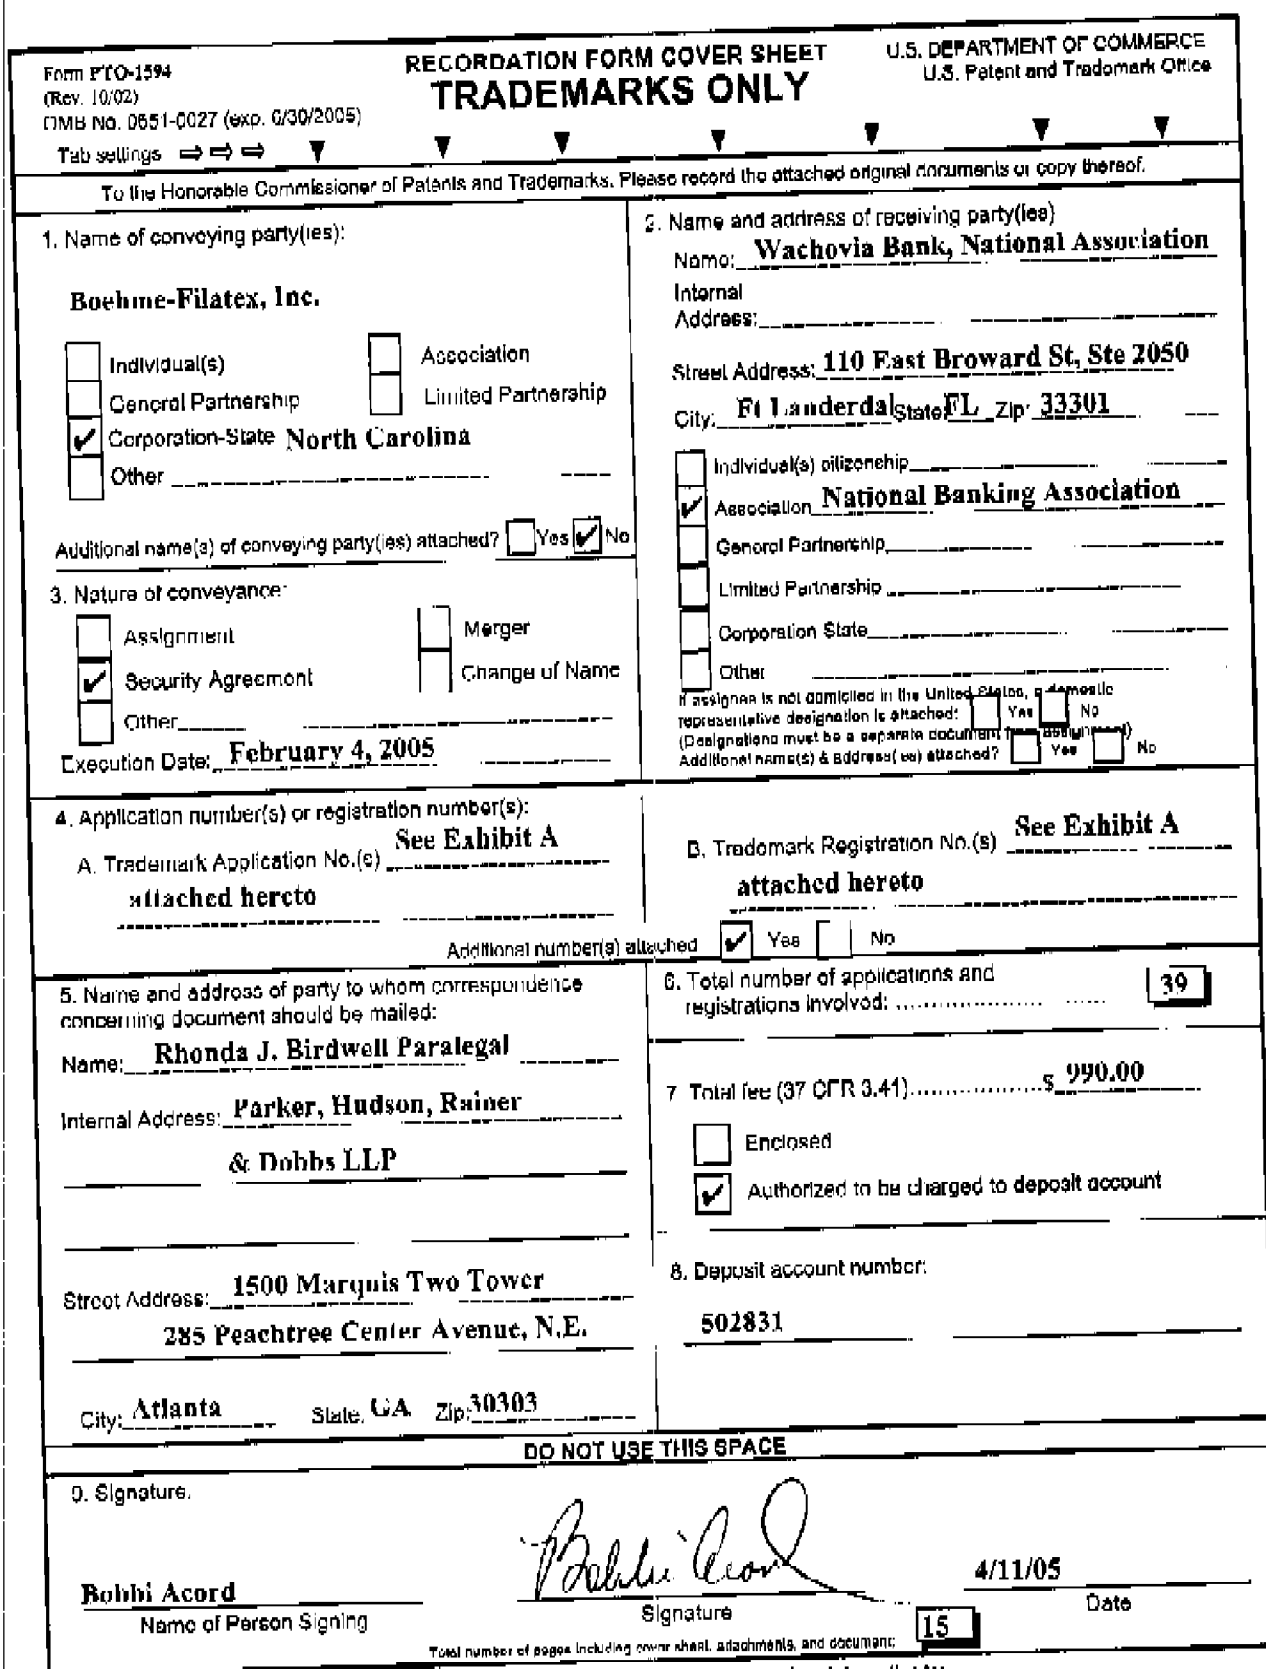 Form PTO-1594
(Rev. 10/02)
OMB No. 0651-0027 (exp. 6/30/2005)
Tab settings
RECORDATION FORM COVER SHEET
TRADEMARKS ONLY
U.S. DEPARTMENT OF COMMERCE
U.S. Patent and Trademark Office
To the Honorable Commissioner of Patents and Trademarks. Please record the attached original documents or copy thereof.
1. Name of conveying party(ies):
Boehme-Filatex, Inc.
Individual(s)
Association
General Partnership
Limited Partnership
Corporation-State North Carolina
Other
Additional name(s) of conveying party(ies) attached? Yes No
2. Name and address of receiving party(ies)
Name: Wachovia Bank, National Association
Internal
Address:
Street Address: 110 East Broward St, Ste 2050
City: Ft Lauderdal State: FL Zip: 33301
Individual(s) citizenship
Association National Banking Association
General Partnership
Limited Partnership
Corporation State
Other
If assignee is not domiciled in the United States, a domestic
representative designation is attached: Yes No
(Designations must be a separate document from assignment)
Additional name(s) & address(es) attached? Yes No
3. Nature of conveyance:
Assignment
Merger
Security Agreement
Change of Name
Other
Execution Date: February 4, 2005
4. Application number(s) or registration number(s):
A. Trademark Application No.(s) See Exhibit A
attached hereto
B. Trademark Registration No.(s) See Exhibit A
attached hereto
Additional number(s) attached Yes No
5. Name and address of party to whom correspondence
concerning document should be mailed:
Name: Rhonda J. Birdwell Paralegal
Internal Address: Parker, Hudson, Rainer
& Dobbs LLP
Street Address: 1500 Marquis Two Tower
285 Peachtree Center Avenue, N.E.
City: Atlanta State: GA Zip: 30303
6. Total number of applications and
registrations involved: .................... ...... 39
7 Total fee (37 CFR 3.41)..................$ 990.00
Enclosed
Authorized to be charged to deposit account
8. Deposit account number:
502831
DO NOT USE THIS SPACE
9. Signature.
Bobbi Acord
Name of Person Signing
Bobbi Acord
Signature
4/11/05
Date
Total number of pages including cover sheet, attachments, and document: 15